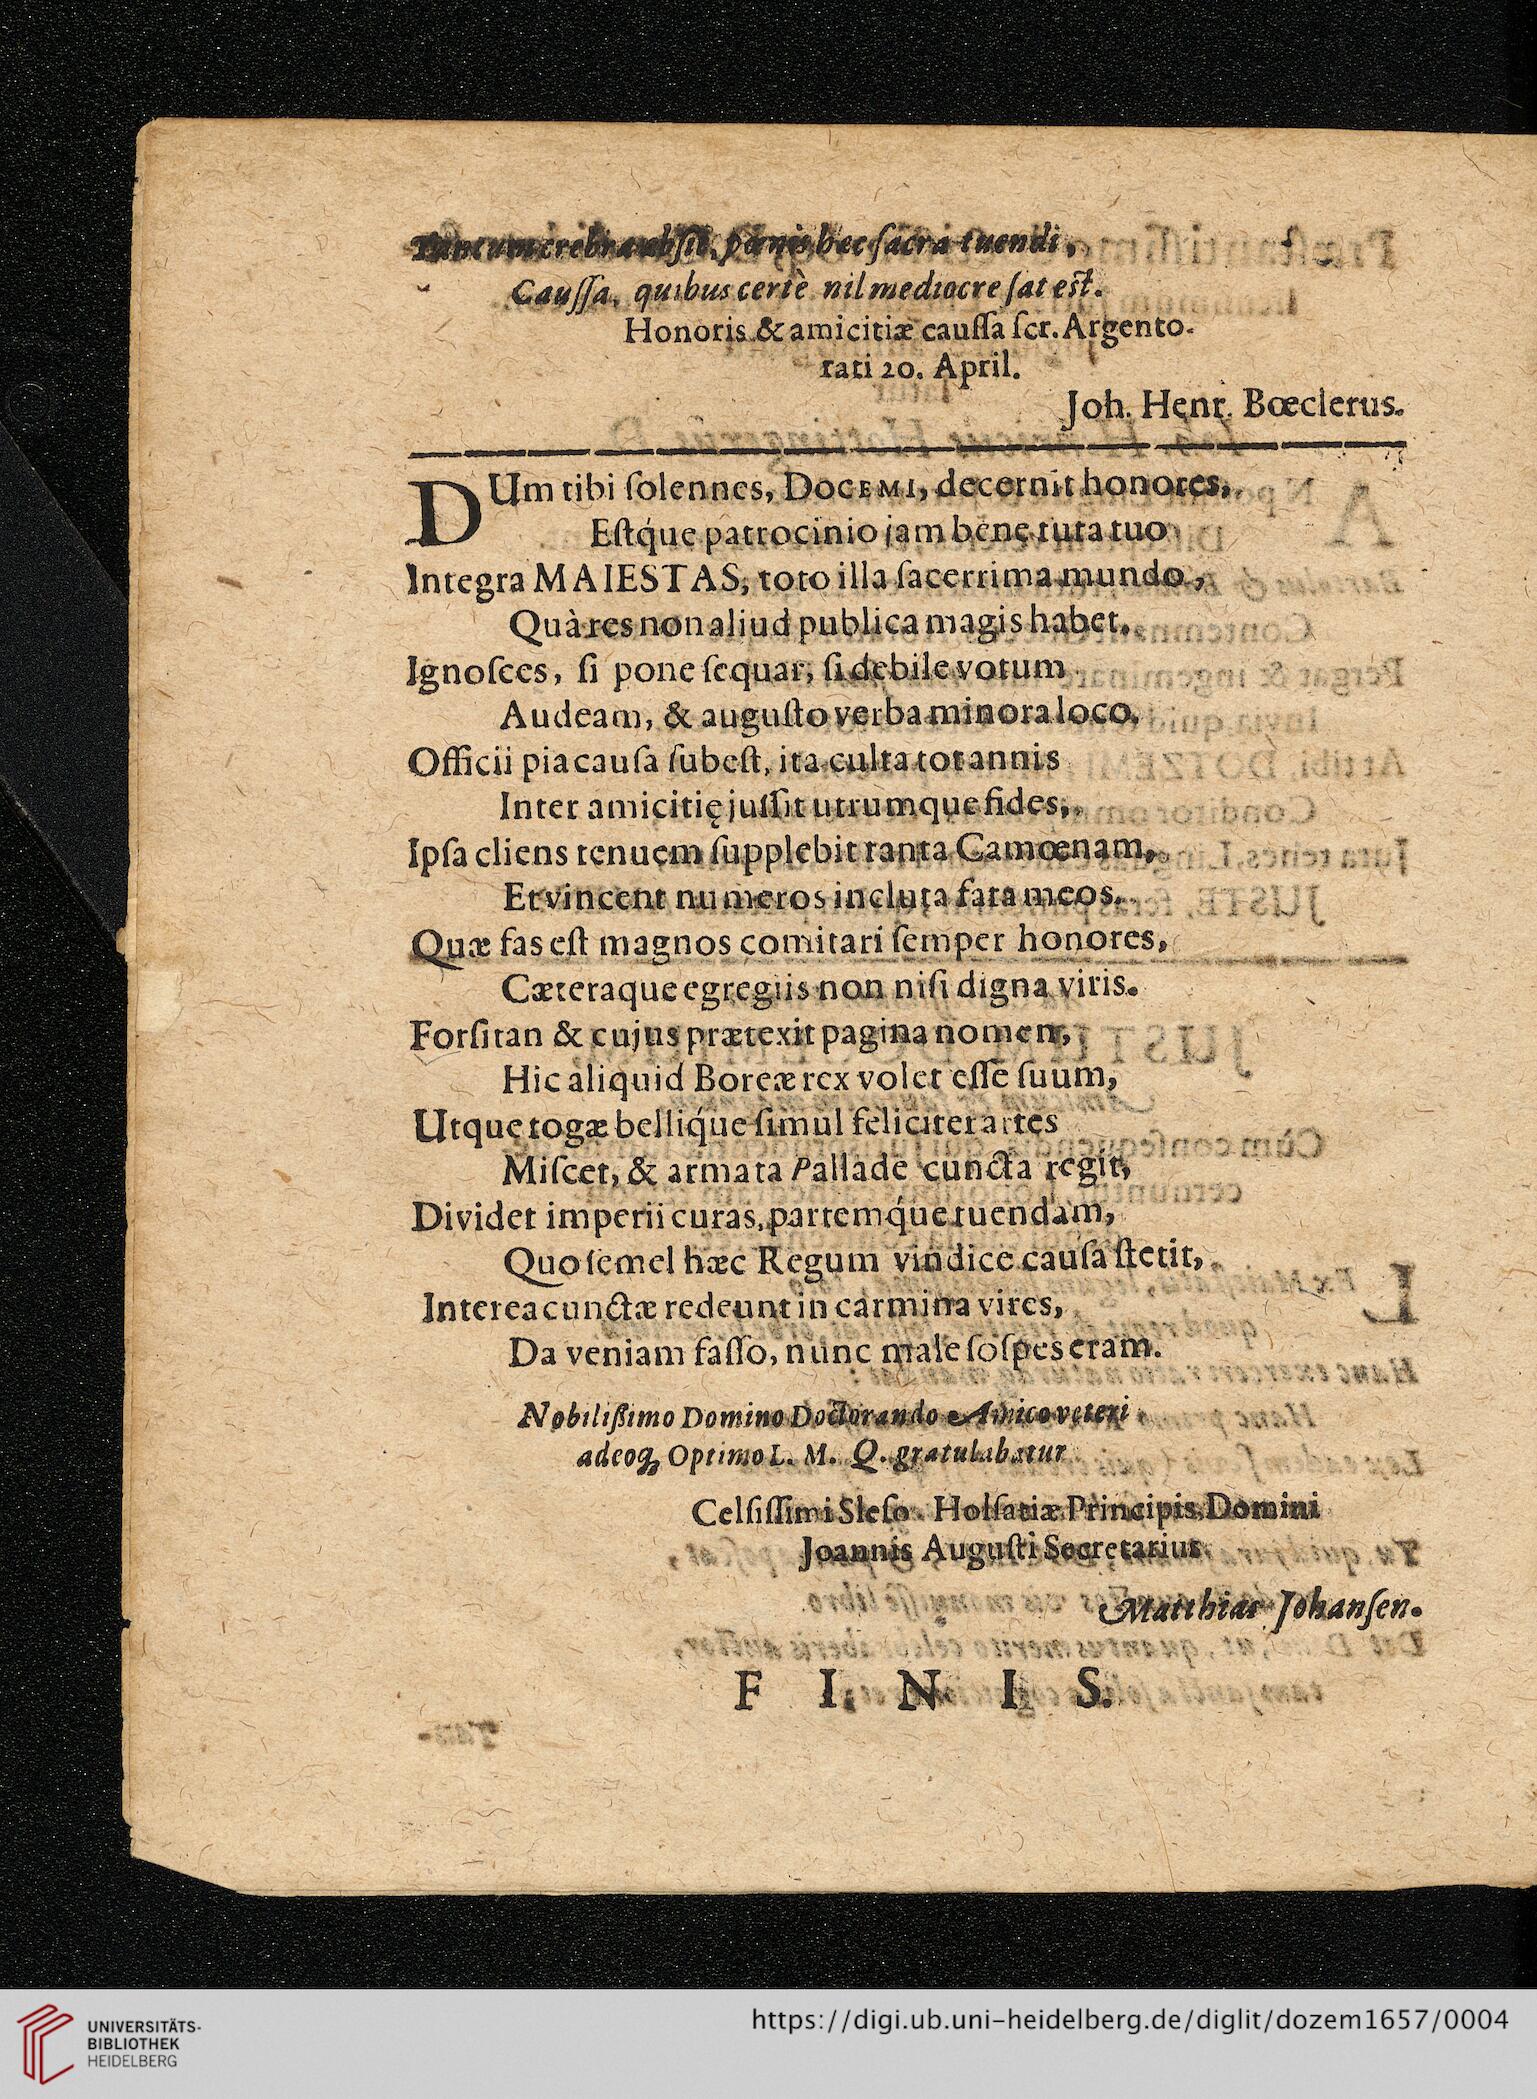 Tantum crebra absit, pœnis hæc sacra tuendi,
Caussa, quibus certè nil mediocre sat est.
Honoris & amicitiæ caussa scr. Argento-
rati 20. April.
Joh. Henr. Bœclerus.
DUm tibi solennes, DOCEMI, decernit honores,
Estq́ue patrocinio jam bene tuta tuo
Integra MAIESTAS, toto illa sacerrima mundo,
Quà res non aliud publica magis habet.
Ignosces, si pone sequar, si debile votum
Audeam, & augusto verba minora loco.
Officii pia causa subest, ita culta tot annis
Inter amicitię jussit utrumque fides,
Ipsa cliens tenuem supplebit tanta Camœnam,
Et vincent numeros incluta fata meos.
Quæ fas est magnos comitari semper honores,
Cæteraque egregiis non nisi digna viris.
Forsitan & cujus prætexit pagina nomen,
Hic aliquid Boreæ rex volet esse suum,
Utque togæ belliq́ue simul feliciter artes
Miscet, & armata Pallade cuncta regit,
Dividet imperii curas, partemq́ue tuendam,
Quo semel hæc Regum vindice causa stetit,
Interea cunctæ redeunt in carmina vires,
Da veniam fasso, nunc male sospes eram.
Nobilißimo Domino Doctorando Amico veteri
adeoq; Optimo L. M. Q. gratulabatur
Celsissimi Sleso. Holsatiæ Principis Domini
Joannis Augusti Secretarius
Matthias Johansen.
F I N I S.
UNIVERSITÄTS-
BIBLIOTHEK
HEIDELBERG
https://digi.ub.uni-heidelberg.de/diglit/dozem1657/0004